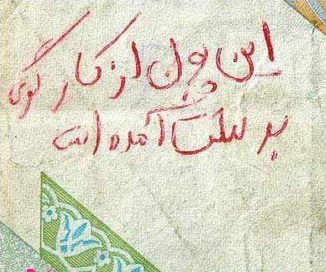 این پول از کارگری
بدست آمده است